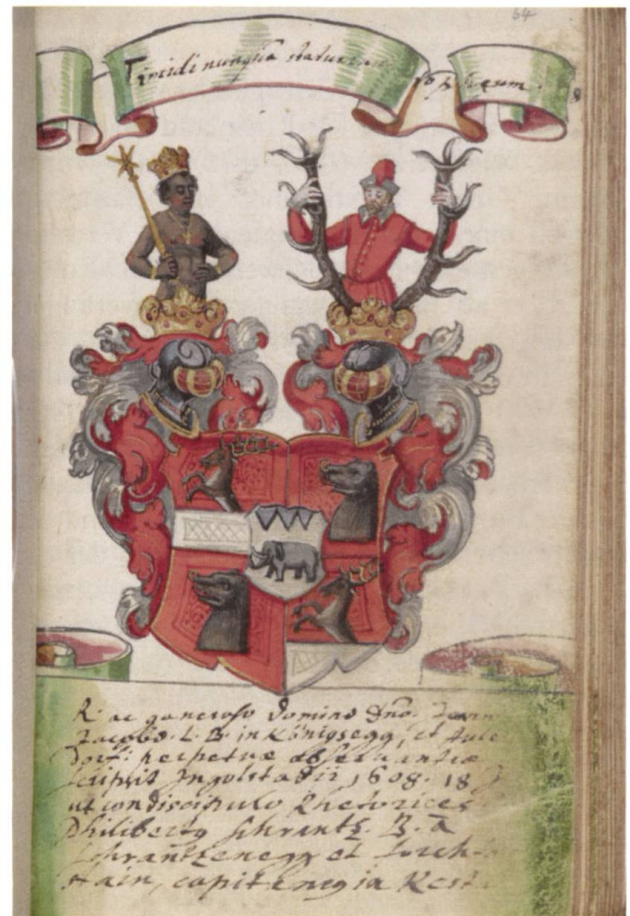 64
Timidi nunquā statuerunt trophæum.
R. ac generoso Domino Dno. Joann
Jacobo. L. B. in Königsegg, et Aule
dorf: perpetuæ observantiæ
scripsit Ingolstadii 1608. 18
ut condiscipulo Rhetorices
Philibertq Schrantz. B. ā
Schrantzenegg et forch
stain, capitenq in